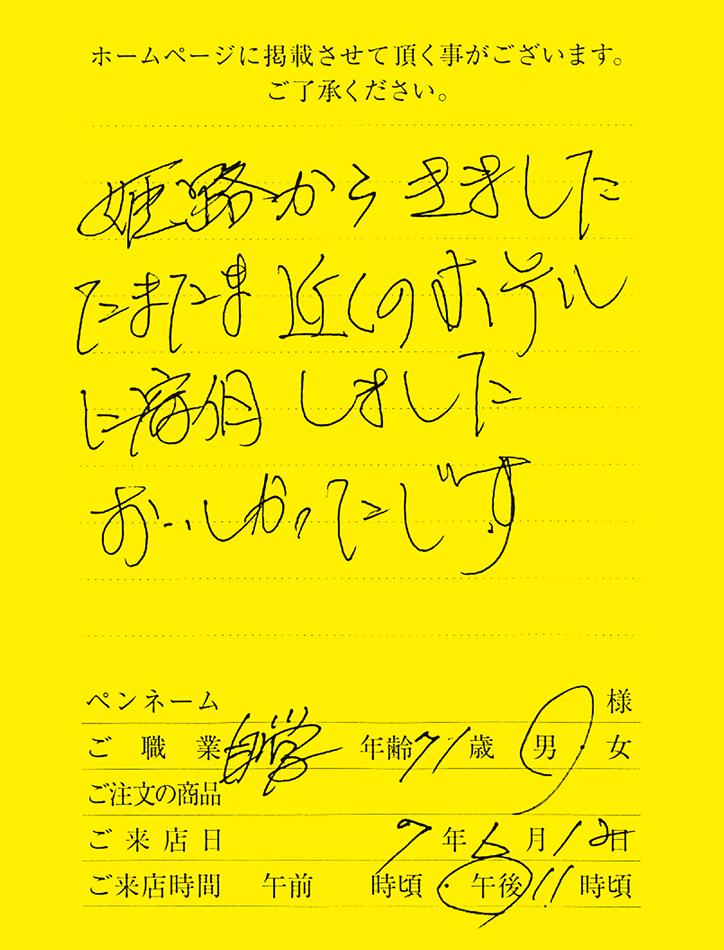 ホームページに掲載させて頂く事がございます。
ご了承ください。
姫路からきました
たまたま近くのホテル
に宿泊しました
おいしかったです
ペンネーム 様
ご職業 自営 年齢 71歳 男・女
ご注文の商品
ご来店日 7年6月12日
ご来店時間 午前 時頃・午後11時頃